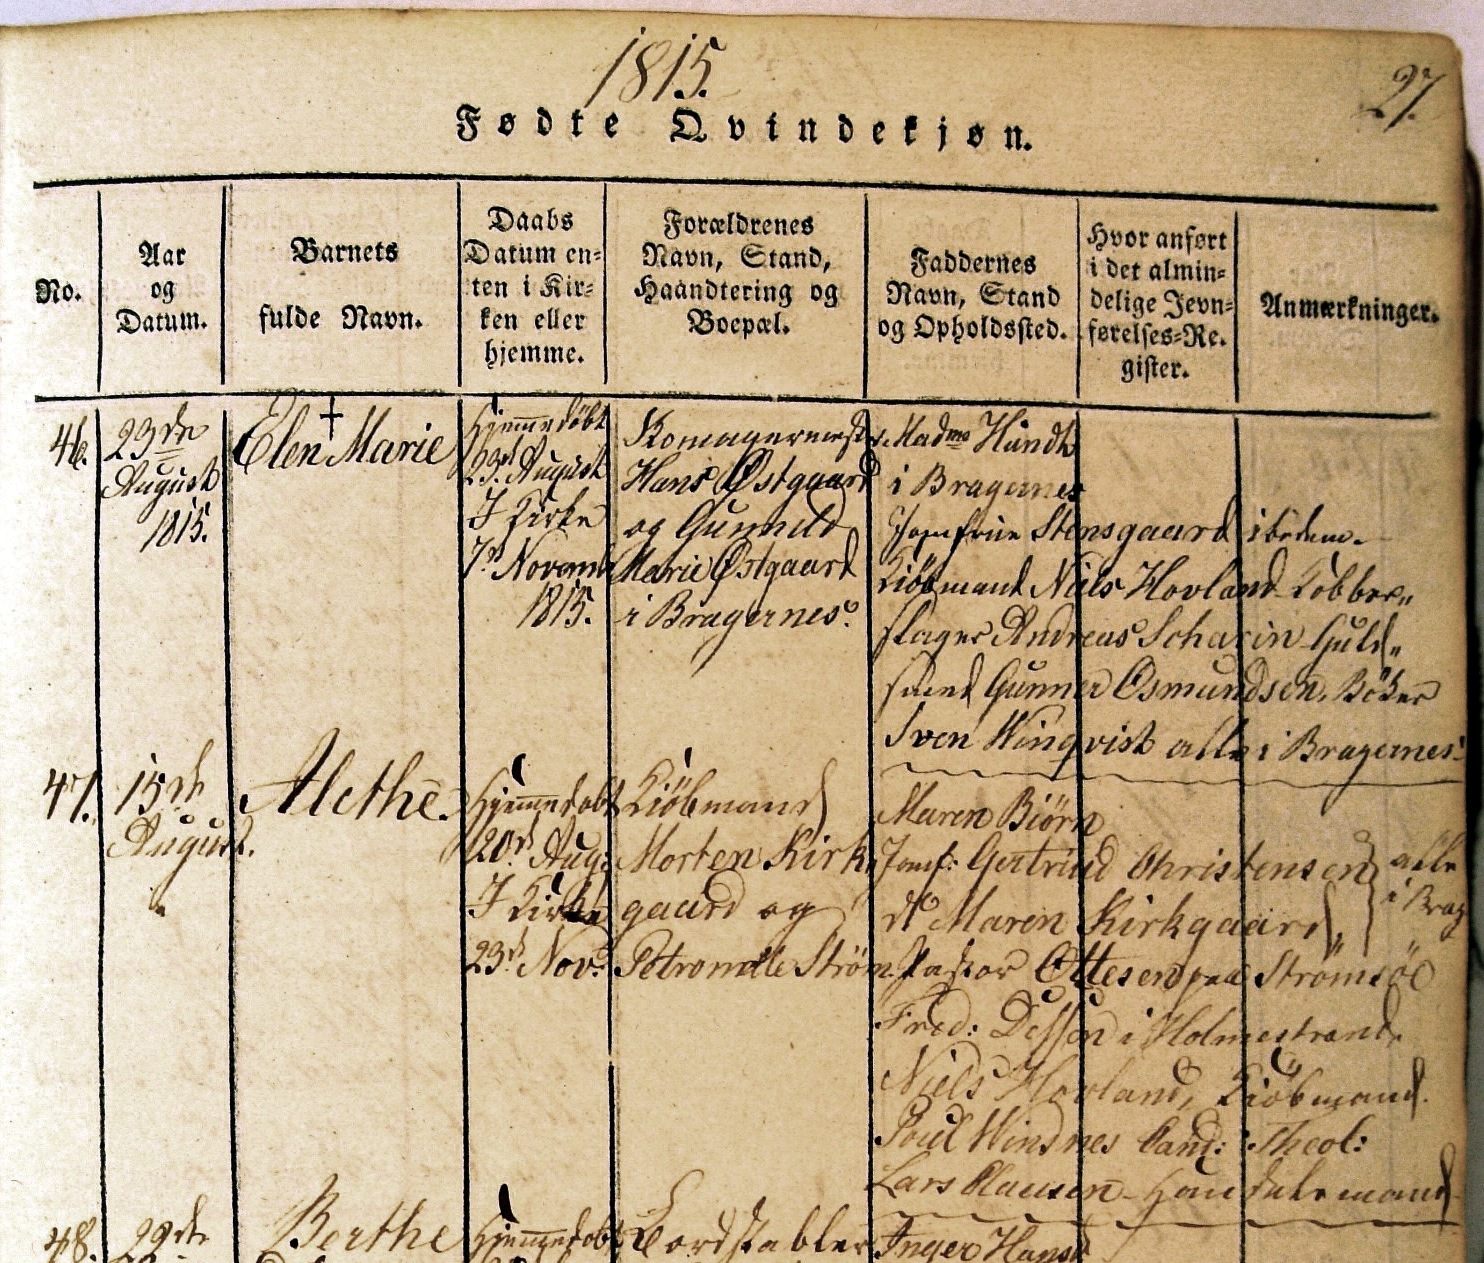 1815.
27.
Fødte Qvindekjøn.
No.
Aar
og
Datum.
Barnets
fulde Navn.
Daabs
Datum en-
ten i Kir-
ken eller
hjemme.
Forældrenes
Navn, Stand,
Haandtering og
Boepæl.
Faddernes
Navn, Stand
og Opholdssted.
Hvor anført
i det almin-
delige Jevn-
førelses-Re.
gister.
Anmærkninger.
46.
23de
August
1815.
†
Elen Marie
Hjemmedøbt
23d August
I Kirke
7d Novemb
1815.
Skomagermester
Hans Østgaard
og Gunnild
Marie Østgaard
i Bragernes.
Madme Hundt
i Bragernes
Jomfrue Stensgaard ibidem.
Kiöbmand Niels Hovland Kobber„
slager Andreas Scharin Guld„
smed Gunner Osmundsen, Böker
Sven Winqvist alle i Bragernes.
47.
15de
August.
Alethe.
Hjemmedøbt
20d Aug:
I Kirke
23d Nov:
Kiöbmand
Morten Kirk,
gaard og
Petronelle Ström
Maren Biörn
Jomf: Gertrud Christensen
do Maren Kirkgaard„
alle
i Brag
Pastor Ottesen paa Strömsöe
Fred: Dessen i Holmestrand.
Niels Hovland, Kiöbmand.
Poul Windnes Cand: Theol:
Lars Clausen - Handelsmand
48.
22de
Berthe
Hjemmedøbt
Bordstabler
Inger Hansd